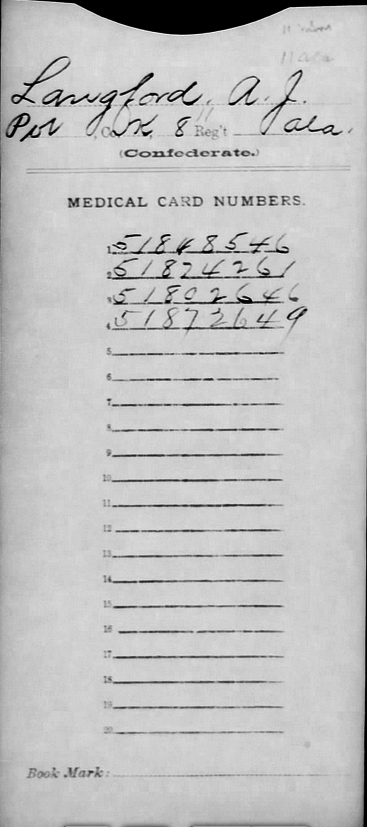 11 Ala
Langford, A. J.
Pvt, Co. K, 8 11 Reg't Ala.
(Confederate.)
MEDICAL CARD NUMBERS.
1 51848546
2 51824261
3 51802646
4 51872649
5
6
7
8
9
10
11
12
13
14
15
16
17
18
19
20
Book Mark: